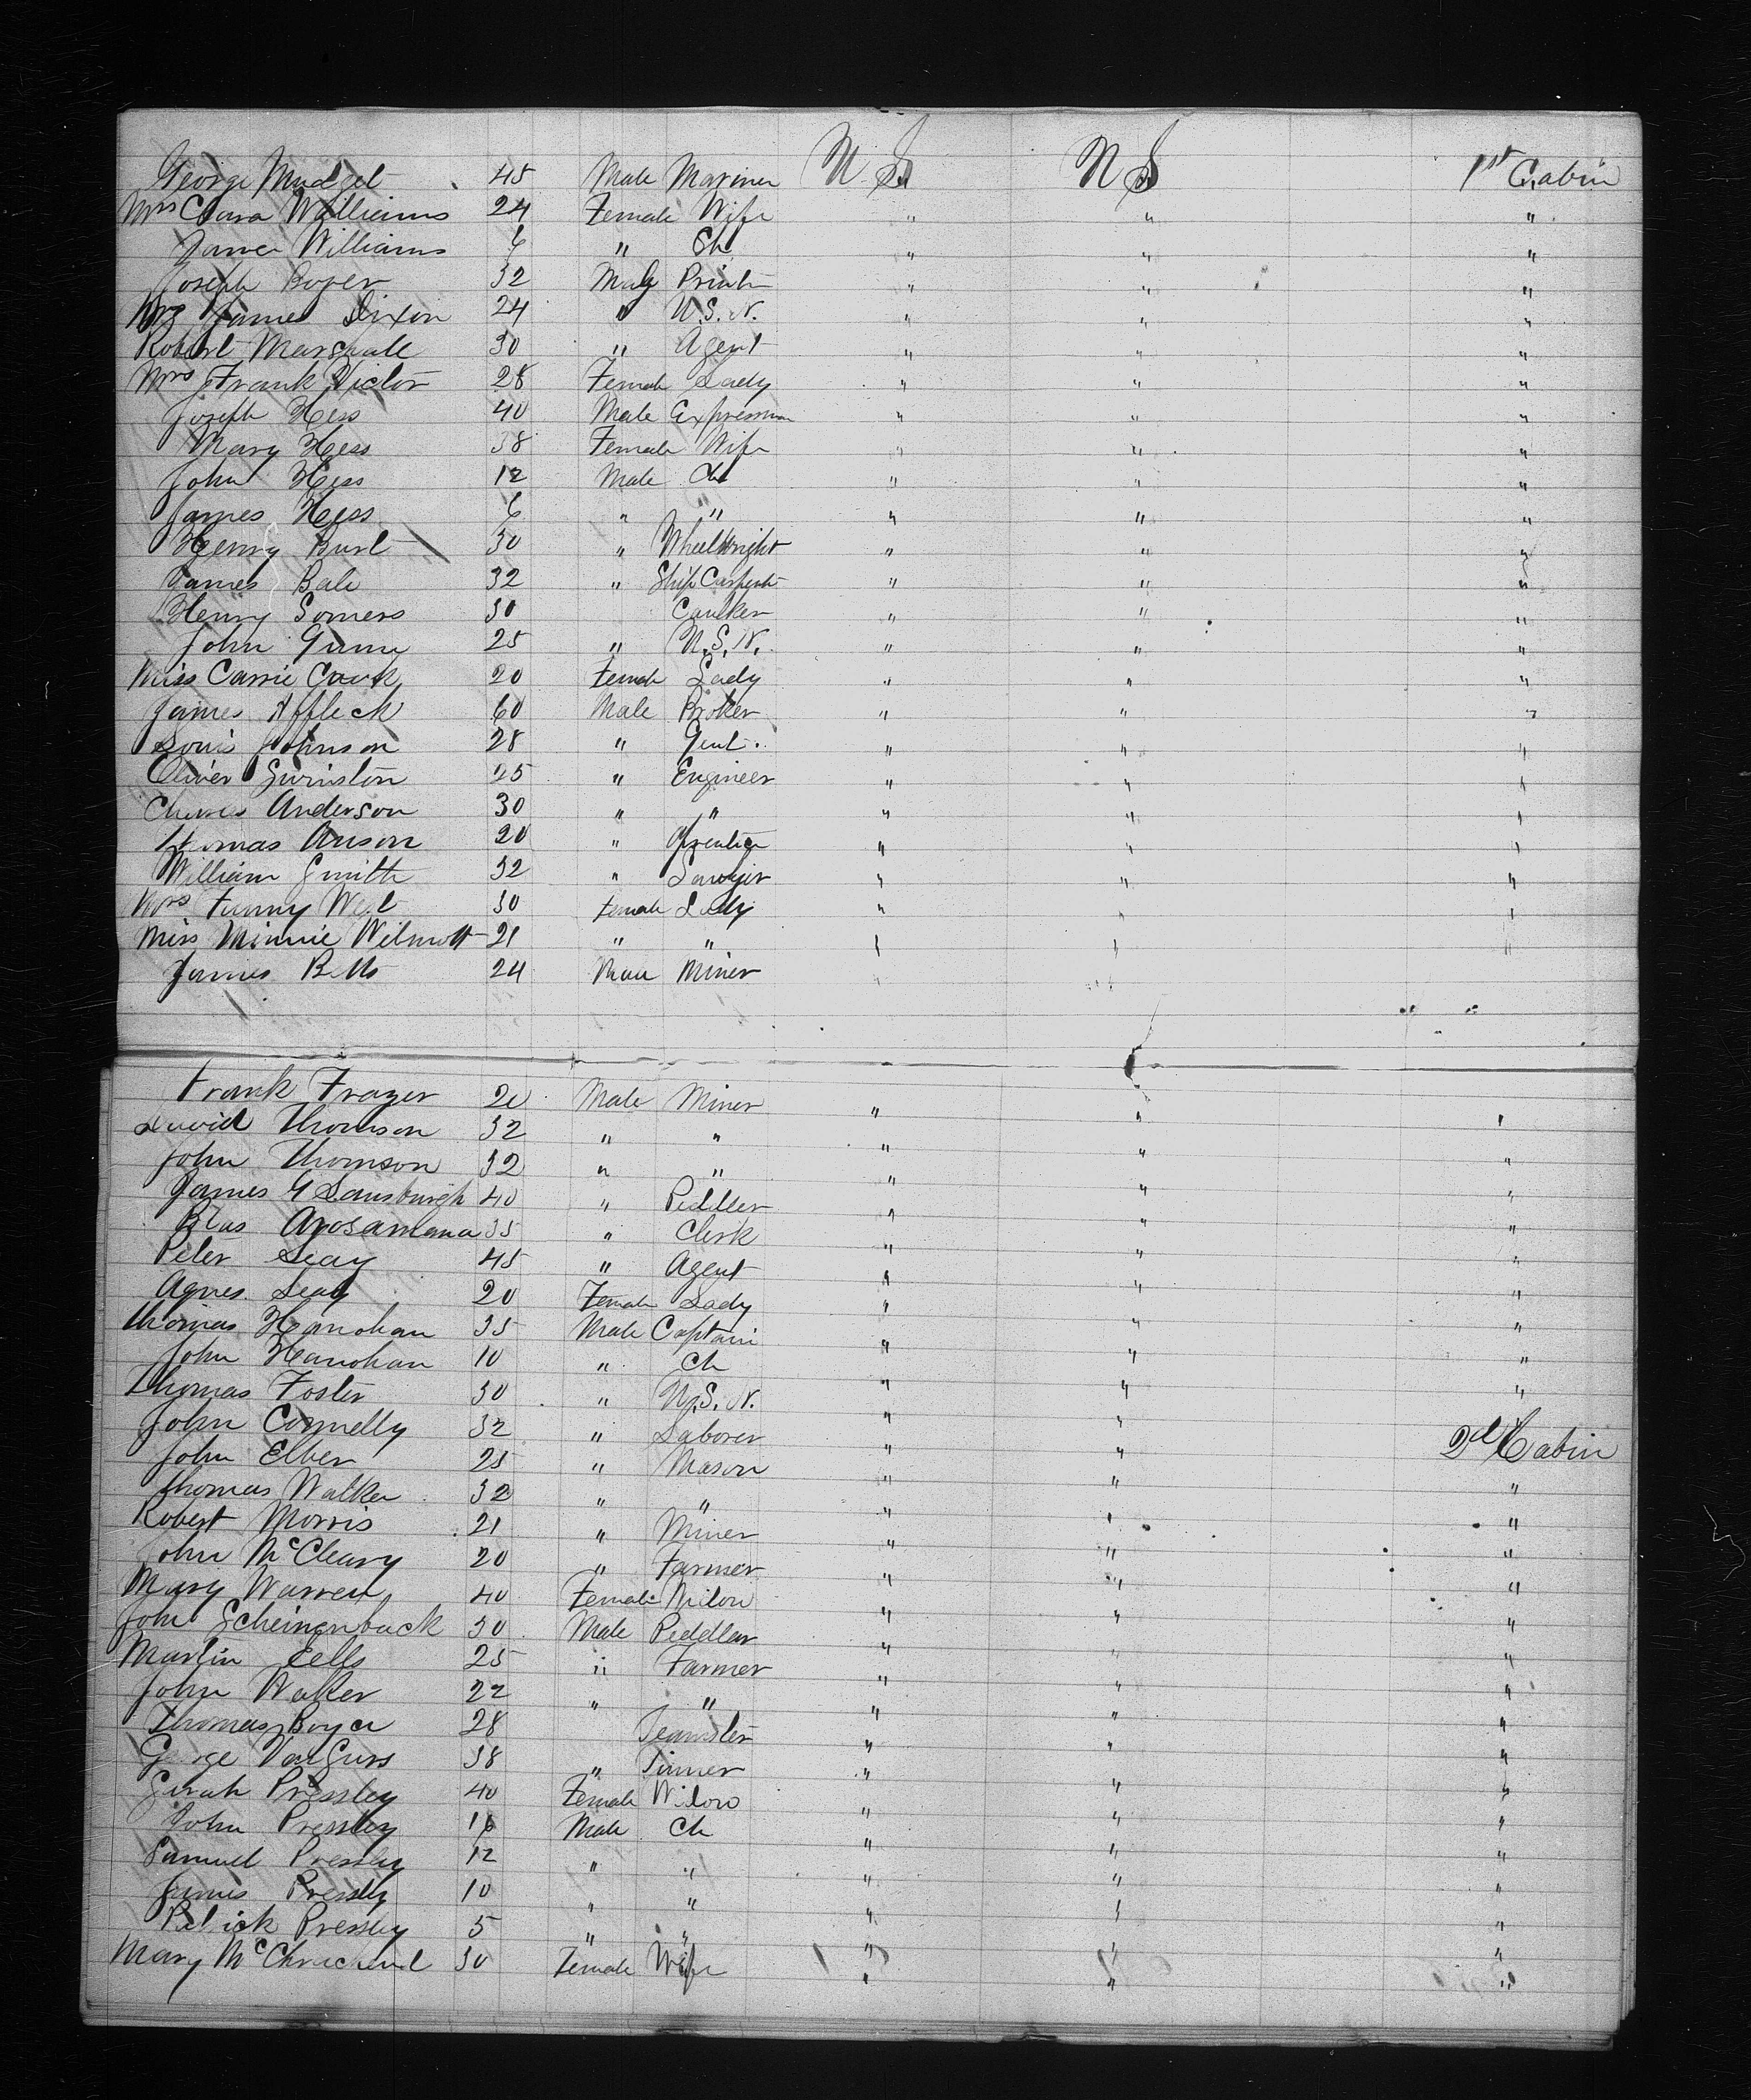 George Mudget 45 Male Mariner U S U S 1st Cabin
Mrs Clara Williams 24 Female Wife " " "
James Williams 6 " Ch " " "
Joseph Boyer 32 Male Printer " " "
Mrs James Dixon 24 " U.S.N. " " "
Robert Marshall 30 " Agent " " "
Mrs Frank Victor 28 Female Lady " " "
Joseph Hess 40 Male Expressman " " "
Mary Hess 38 Female Wife " " "
John Hess 12 Male Ch " " "
James Hess 6 " " " " "
Henry Burt 30 " Wheelwright " " "
James Bale 32 " Ship Carpenter " " "
Henry Somers 30 Caulker " " "
John Gunn 25 " U.S.N. " " "
Miss Carrie Cook 20 Female Lady " " "
James Affleck 60 Male Broker " " "
Louis Johnson 28 " Gent. " " "
Oliver Swinston 25 " Engineer " " "
Charles Anderson 30 " " " " "
Thomas Anson 20 " Aprentice " " "
William Smith 32 " Lawyer " " "
Mrs Fanny West 30 Female Lady " " "
Miss Minnie Wilmott 21 " " " " "
James Betts 24 Male Miner " "
Frank Frazer 20 Male Miner " " "
David Thomson 32 " " " " "
John Thomson 32 " " " " "
James G Sansburgh 40 " Peddler " " "
Blas Aposamlana 35 " Clerk " " "
Peter Seay 45 " Agent " " "
Agnes Seay 20 Female Lady " " "
Thomas Hanohan 35 Male Captain " " "
John Hanohan 10 " Ch " " "
Thomas Foster 30 " U.S.N. " " "
John Connelly 32 " Laborer " " 2d Cabin
John Elber 25 " Mason " " "
Thomas Walker 32 " " " " "
Robert Morris 21 " Miner " " "
John McCleary 20 " Farmer " " "
Mary Warren 40 Female Widow " " "
John Scheinenback 30 Male Peddlar " " "
Martin Eells 25 " Farmer " " "
John Walker 22 " " " " "
Thomas Boyce 28 Teamster " " "
George VanGurs 38 " Tinner " " "
Sarah Pressley 40 Female Widow " " "
John Pressley 16 Male Ch " " "
Samuel Pressley 12 " " " " "
James Pressley 10 " " " " "
Patrick Pressley 5 " " " " "
Mary McChrachend 30 Female Wife " " "